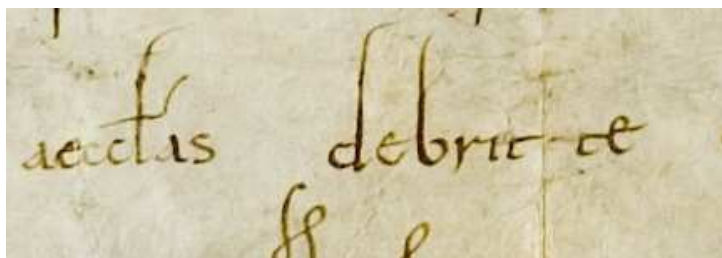 aecclas debricte